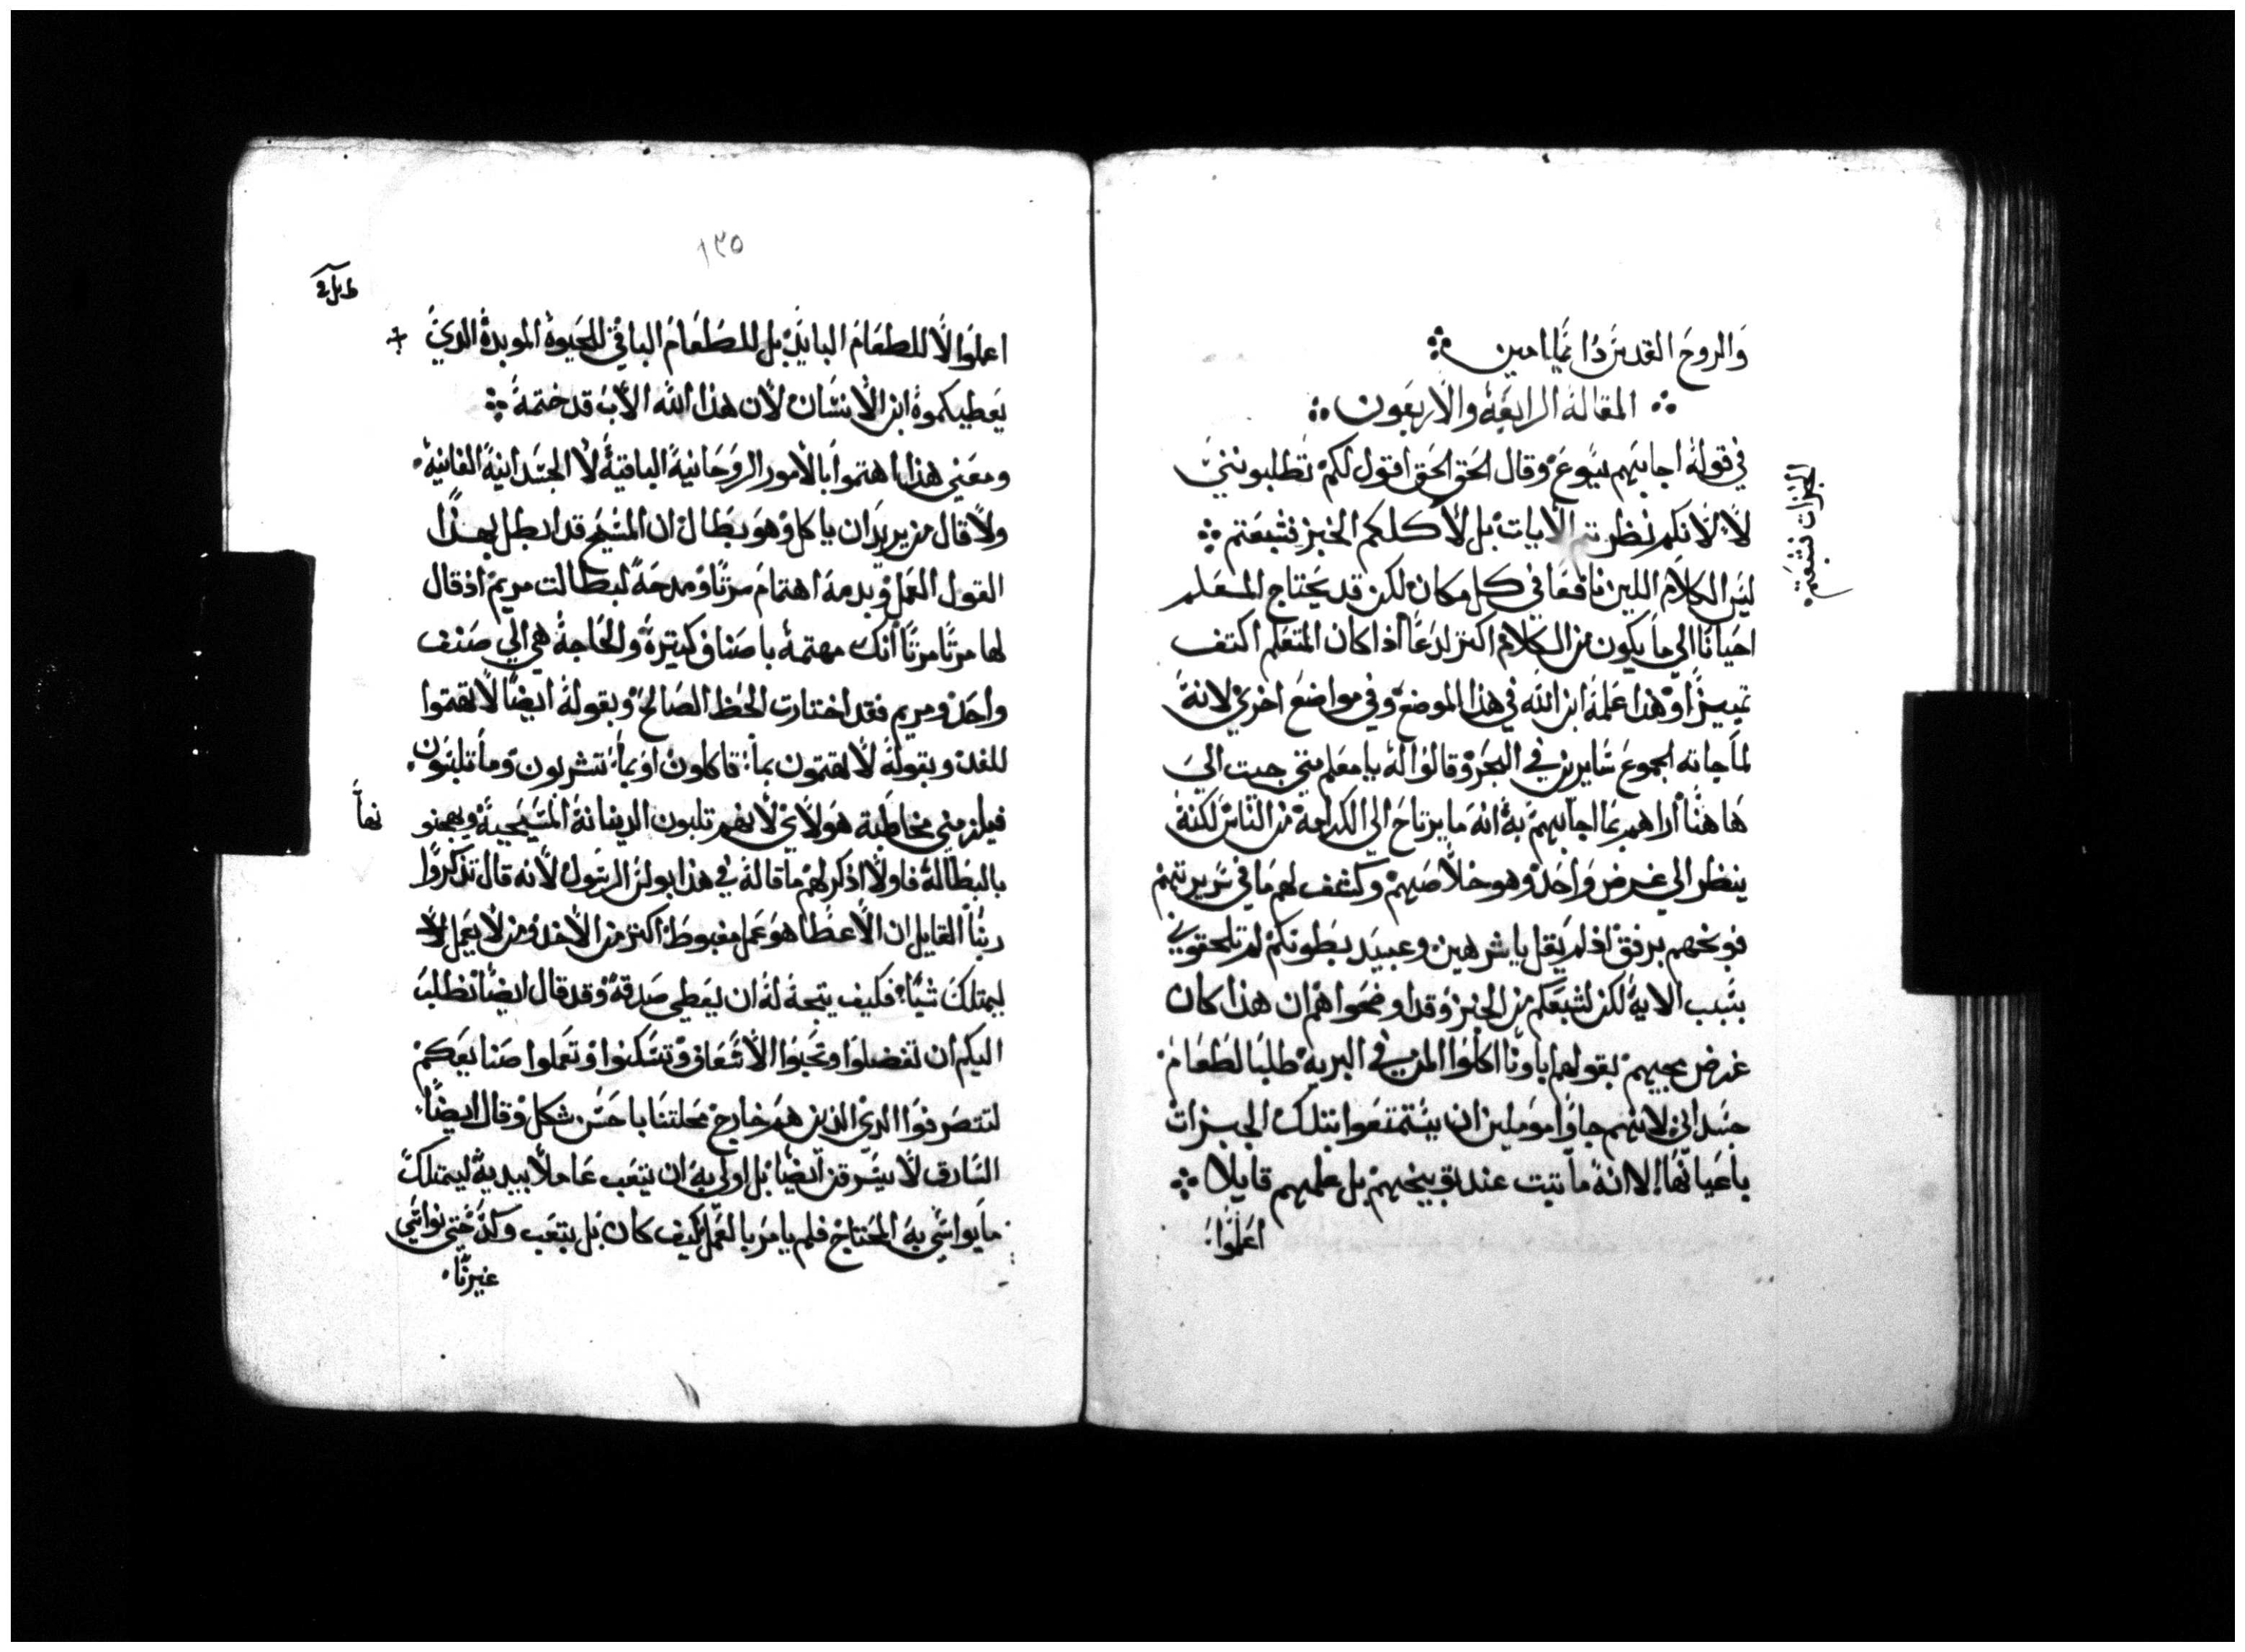 والروح القدس دايما امين
المقالة الرابعة والاربعون
في قوله اجابهم يسوع وقال الحق الحق اقول لكم تطلبونني
لا لانكم نظرتم الايات بل لاكلكم الخبز فشبعتم
الخبزات فشبعتم
ليس الكلام اللين نافعا في كل مكان لكن قد يحتاج المعلم
احيانا الي ما يكون من الكلام اكتر لدعا اذا كان المتعلم اكتف
تمييزا وهدا عمله ابن الله في هذا الموضع وفي مواضع اخري لانه
لما جاته الجموع سايرين في البحر وقالوا له يا معلم متي جيت الي
هاهنا اراهم بما اجابهم به انه ما يرتاح الي الكرامة من الناس لكنه
ينظر الي غرض واحد وهو خلاصهم وكشف لهم ما في سريرتهم
فوبخهم برفق اذ لم يقل يا شرهين وعبيد بطونكم لم تلحقوني
بسبب الاية لكن لشبعكم من الخبز وقد اوضحوا هم ان هذا كان
غرض مجيهم بقولهم اباونا اكلوا المن في البرية طلبا لطعام
جسداني لانهم جاوا موملين ان يتمتعوا بتلك الخبزات
باعيانها الا انه ما تبت عند توبيخهم بل علمهم قايلا
اعملوا
١٣٥
اعملوا لا للطعام البايد بل للطعام الباقي للحيوة الموبدة الدي
يعطيكموه ابن الانسان لان هذا الله الاب قد ختمه
ومعني هذا اهتموا بالامور الروحانية الباقية لا الجسدانية الفانية
ولا قال من يريد ان ياكل وهو بطال ان المسيح قد ابطل بهذا
القول العمل وبدمه اهتمام مرتا ومدحه لبطالت مريم اذ قال
لها مرتا مرتا انك مهتمة باصناف كتيرة والحاجة هي الي صنف
واحد ومريم فقد اختارت الحظ الصالح وبقوله ايضا لا تهتموا
للغد وبقوله لا تهتمون بما تاكلون او بما تشربون وما تلبسون
فيلزمني مخاطبة هولاي لانهم تلبون الديانة المسيحية ويهجنونها
بالبطالة فاولا اذكر لهم ما قاله في هذا بولس الرسول لانه قال تذكروا
ربنا القايل ان الاعطا هو عمل مغبوط اكتر من الاخذ ومن لا يعمل ولا
ليمتلك شيا فكيف يتجه له ان يعطي صدقة وقد قال ايضا نطلب
اليكم ان تفضلوا وتحبوا الاسعاف وتسكنوا وتعملوا صنايعكم
لتتصرفوا الدي الذين هم خارج محلتنا باحسن شكل وقال ايضا
السارق لا يسرقن ايضا بل اولي به ان يتعب عاملا بيديه ليمتلك
ما يواسي به المحتاج فلم يامر بالعمل كيف كان بل بتعب وكد حتي نواسي
غيرنا